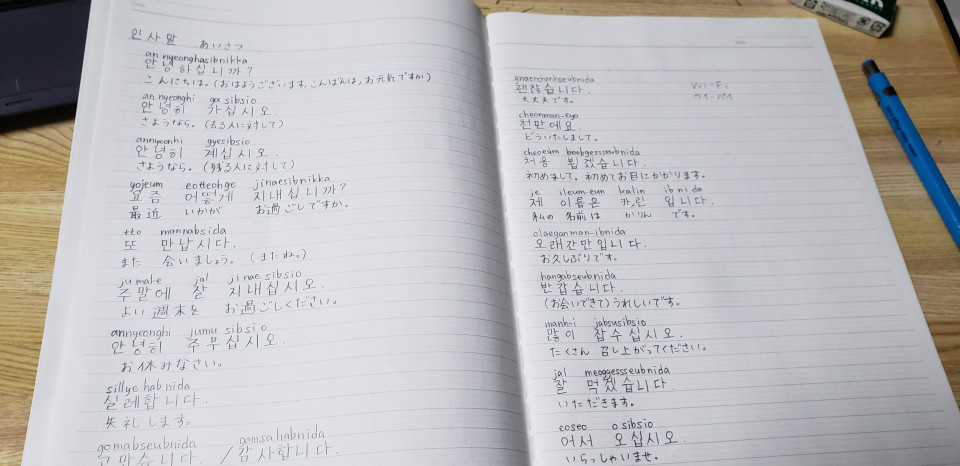 인사말 あいさつ
an nyeonghasibnikka
안녕하십니까?
こんにちは。(おはようございます、こんばんは、お元気ですか)
an nyeonghi ga sibsio
안녕히 가십시오.
さようなら。(去る人に対して)
annyeonhi gyesibsio
안녕히 계십시오.
さようなら。(残る人に対して)
yojeum eotteohge jinaesibnikka
요즘 어떻게 지내십니까?
最近 いかが お過ごしですか。
tto mannabsida
또 만납시다.
また 会いましょう。(またね。)
ju mal-e jal ji nae sibsio
주말에 잘 지내십시오.
よい 週末を お過ごしください。
annyeonghi jumu sibsio
안녕히 주무십시오.
お休みなさい。
sillye habnida
실례합니다.
失礼します。
gomabseubnida / gamsa habnida
고맙습니다. 감사합니다.
gwaenchanhseubnida
괜찮습니다.
大丈夫です。
Wi-Fi
ワイ-ファイ
cheonman-eyo
천만에요.
どういたしまして。
cheoeum boebgessseubnida
처음 뵙겠습니다.
初めまして。初めてお目にかかります。
je ileum-eun kalin ib ni da
제 이름은 카린 입니다.
私の 名前は かりん です。
olaeganman-ibnida
오래간만입니다.
お久しぶりです。
bangabseubnida
반갑습니다.
(お会いできて)うれしいです。
manh-i jabsusibsio
많이 잡수십시오.
たくさん 召し上がってください。
jal meoggessseubnida
잘 먹겠습니다
いただきます。
eoseo o sibsio
어서 오십시오.
いらっしゃいませ。